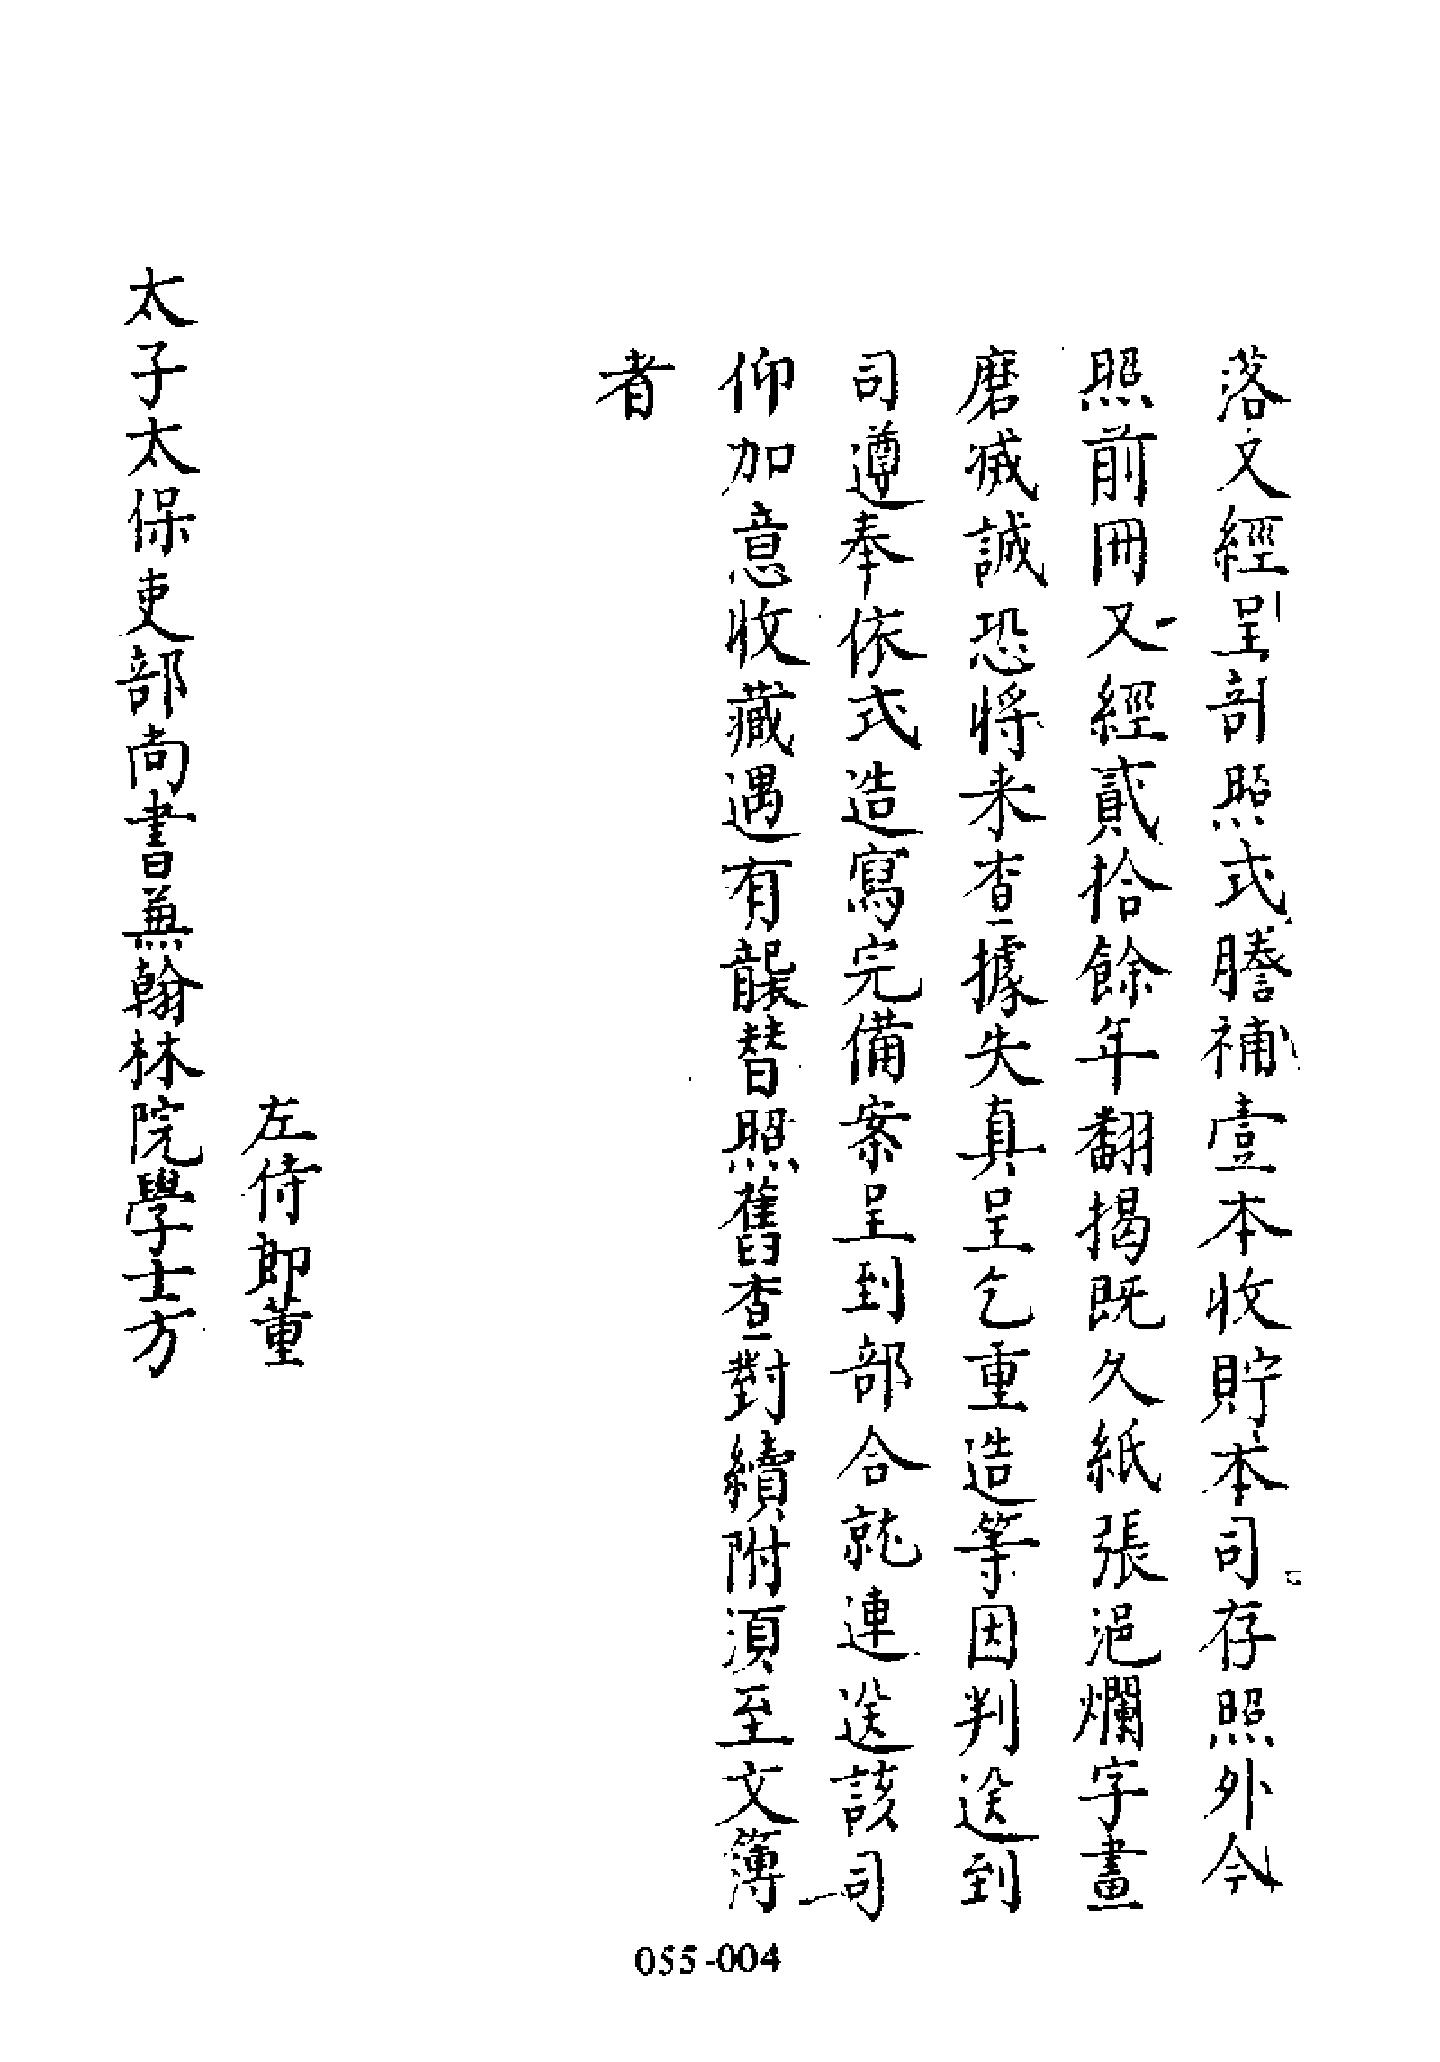 落文經呈部照式謄補壹本收貯本司存照外今
照前冊又經貳拾餘年翻揭既久紙張浥爛字畫
磨滅誠恐將来查據失真呈乞重造等因判送到
司遵奉依式造寫完備案呈到部合就連送該司
仰加意收藏遇有襲替照舊查對續附湏至文簿
者
左侍郎董
太子太保吏部尚書兼翰林院學士方
055-004